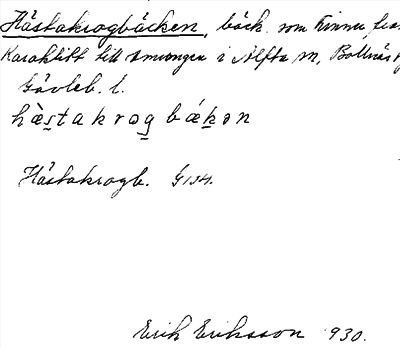 Hästakrogbäcken, bäck som rinner
Karsklitt till Amungen i Alfta sn, Bollnäs
Gävleb. l.
hæ̀stakrog bækən
Hästakrogb. G 134.
Erik Eriksson 1930.